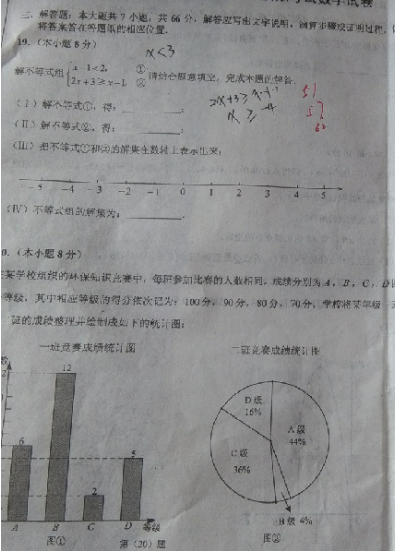 三、解答题：本大题共 7 小题，共 66 分，解答应写出文字说明、演算步骤或证明过程。
将答案答在答题纸的相应位置。
19.（本小题 8 分）
x<3
解不等式组 x-1<2, ①
2x+3≥x-1. ② 请结合题意填空，完成本题的解答。
2x+3≥x-1
x≥-4
（Ⅰ）解不等式①，得：______；
（Ⅱ）解不等式②，得：______；
（Ⅲ）把不等式①和②的解集在数轴上表示出来；
-5 -4 -3 -2 -1 0 1 2 3 4 5
（Ⅳ）不等式组的解集为：______.
0.（本小题 8 分）
某学校组织的环保知识竞赛中，每班参加比赛的人数相同，成绩分别为 A，B，C，D
等级，其中相应等级的得分依次记为：100 分，90 分，80 分，70 分，学校将某年级
班的成绩整理并绘制成如下的统计图：
一班竞赛成绩统计图 二班竞赛成绩统计图
12
6
5
2
A B C D 等级
图①
D 级
16%
A 级
44%
C 级
36%
B 级 4%
图②
第（20）题